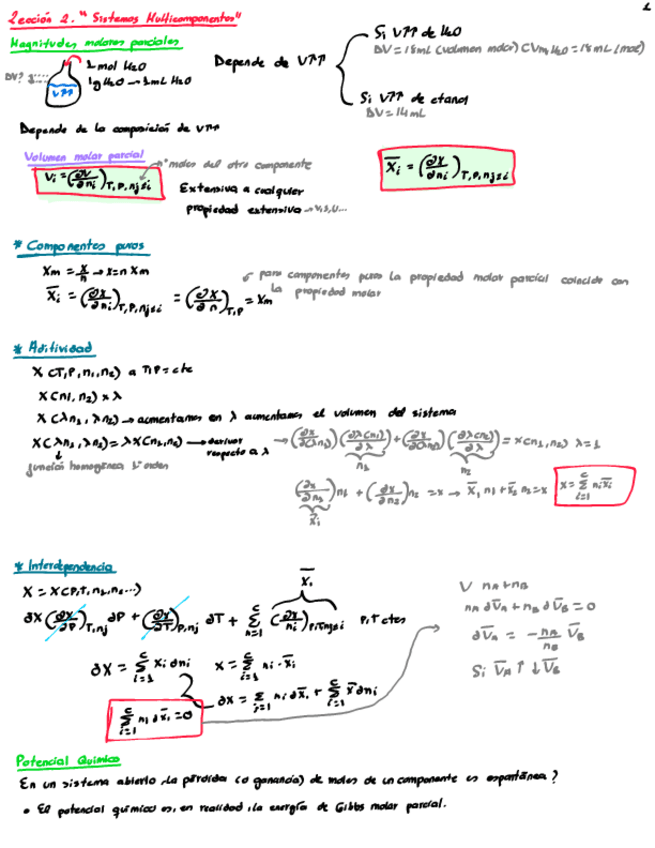 1
Lección 2. "Sistemas Multicomponentes"
Magnitudes molares parciales
1 mol H₂O
1g H₂O → 1mL H₂O
ΔV?
V↑↑
Depende de V↑↑
Si V↑↑ de H₂O
ΔV = 18mL (volumen molar) (Vm, H₂O = 18 mL/mol)
Si V↑↑ de etanol
ΔV = 14mL
Depende de la composición de V↑↑
Volumen molar parcial
Vi = (∂V/∂ni)T,P,nj≠i
nº moles del otro componente
Extensiva a cualquier
propiedad extensiva → V,S,U...
X̅i = (∂X/∂ni)T,P,nj≠i
* Componentes puros
Xm = X/n → X = n Xm
X̅i = (∂X/∂ni)T,P,nj≠i = (∂X/∂n)T,P = Xm
para componentes puros la propiedad molar parcial coincide con
la propiedad molar
* Aditividad
X (T,P,n1,n2) a T,P = cte
X(n1, n2) x λ
X (λn1, λn2) → aumentamos en λ aumentamos el volumen del sistema
X(λn1, λn2) = λX(n1,n2) → derivar
respecto a λ
→ (∂X/∂(λn1)) (∂λ(n1)/∂λ) + (∂X/∂(λn2)) (∂λ(n2)/∂λ) = X(n1,n2) λ=1
n1
n2
función homogénea 1er orden
(∂X/∂n1)n1 + (∂X/∂n2)n2 = X → X̅1 n1 + X̅2 n2 = X
X̅i
X = Σ ni X̅i
* Interdependencia
X = X(P,T,n1,n2...)
X̅i
∂X (∂X/∂P)T,nj ∂P + (∂X/∂T)P,nj ∂T + Σ (∂X/ni)P,T,nj≠i P,T ctes
∂X = Σ X̅i ∂ni X = Σ ni · X̅i
∂X = Σ ni ∂X̅i + Σ X̅ ∂ni
Σ ni ∂X̅i = 0
V nA + nB
nA ∂V̅A + nB ∂V̅B = 0
∂V̅A = - nB/nB V̅B
Si V̅A ↑ ↓ V̅B
Potencial Químico
En un sistema abierto ¿La pérdida (o ganancia) de moles de un componente es espontánea?
• El potencial químico es, en realidad, la energía de Gibbs molar parcial.